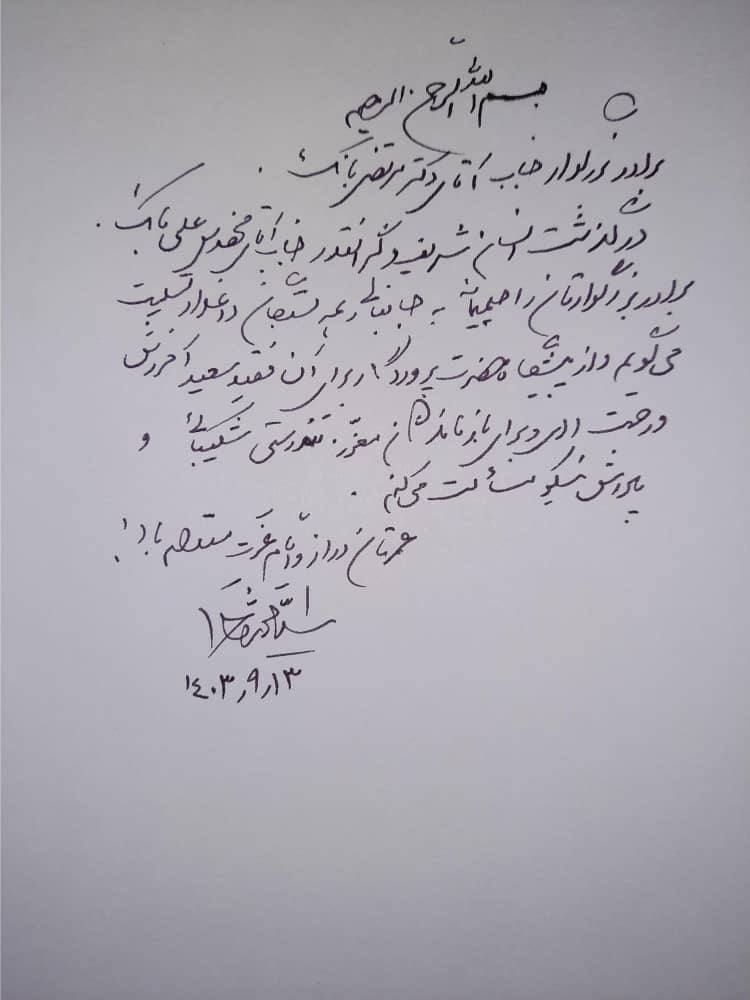 بسم الله الرحمن الرحیم
برادر بزرگوار جناب آقای دکتر مرتضی بانک
درگذشت انسان شریف و گرانقدر جناب آقای مهندس علی بانک
برادر بزرگوارتان را صمیمانه به جنابعالی و همه بستگان داغدار تسلیت
می‌گویم و از پیشگاه حضرت پروردگار برای آن فقید سعید آمرزش
و رحمت الهی و برای بازماندگان معزز، تندرستی شکیبائی و
پاداش نیکو مسألت می‌کنم.
عمرتان دراز و ایام عزت مستدام باد!
۱۴۰۳٫۹٫۱۳